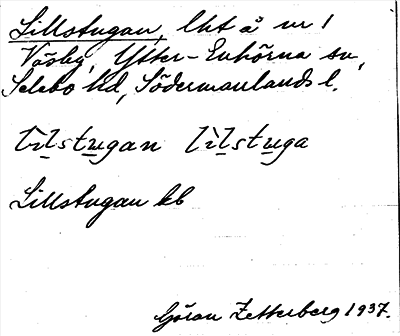 Lillstugan, lht å nr 1
Väsby, Ytter-Enhörna sn,
Selebo hd, Södermanlands l.
lìlstugan lìlstuga
Lillstugan kb
Göran Zetterberg 1937.